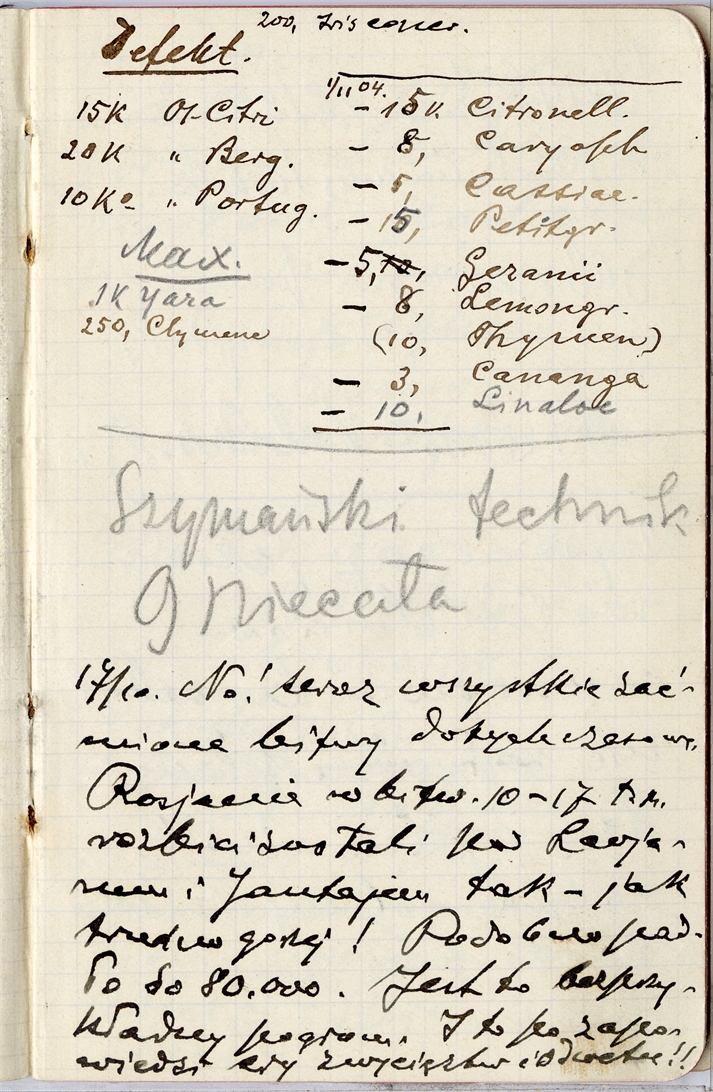 200, Iris
Defekt.
15K Ol. Citri
20K " Berg.
10Ko " Portug.
Max.
1K Yara
250, Clymene
1/11 04.
- 15K Citronell.
- 8, Caryoph
- 5, Cassiae.
- 15, Petitgr.
- 5, 10, Geranii
- 8, Lemongr.
(10, Thymen)
- 3, Cananga
- 10, Linaloe
Szymański technik
9 Niecała
17/10. No! teraz wszystkie zać-
mione bitwy dotychczasowe.
Rosjanie w bitw. 10-17 t.m.
rozbici zostali pod Laoja-
nem i Jantajem tak - jak
trudno gorzej! Podobno pad-
ło do 80.000. Jest to bezprzy-
kładny pogrom. I to po zapo-
wiedzi ery zwycięztw i odwetu!!